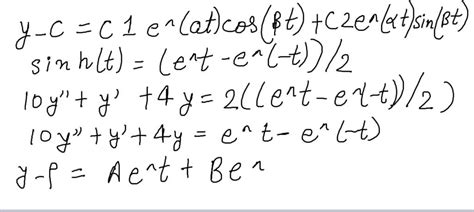 y-c = C1 e^(at)cos(βt)+C2e^(αt)sin(βt)
sinh(t) = (e^t-e^(-t))/2
10y''+y' +4y = 2((e^t-e^(-t))/2)
10y''+y'+4y = e^t-e^(-t)
y-p = Ae^t + Be^